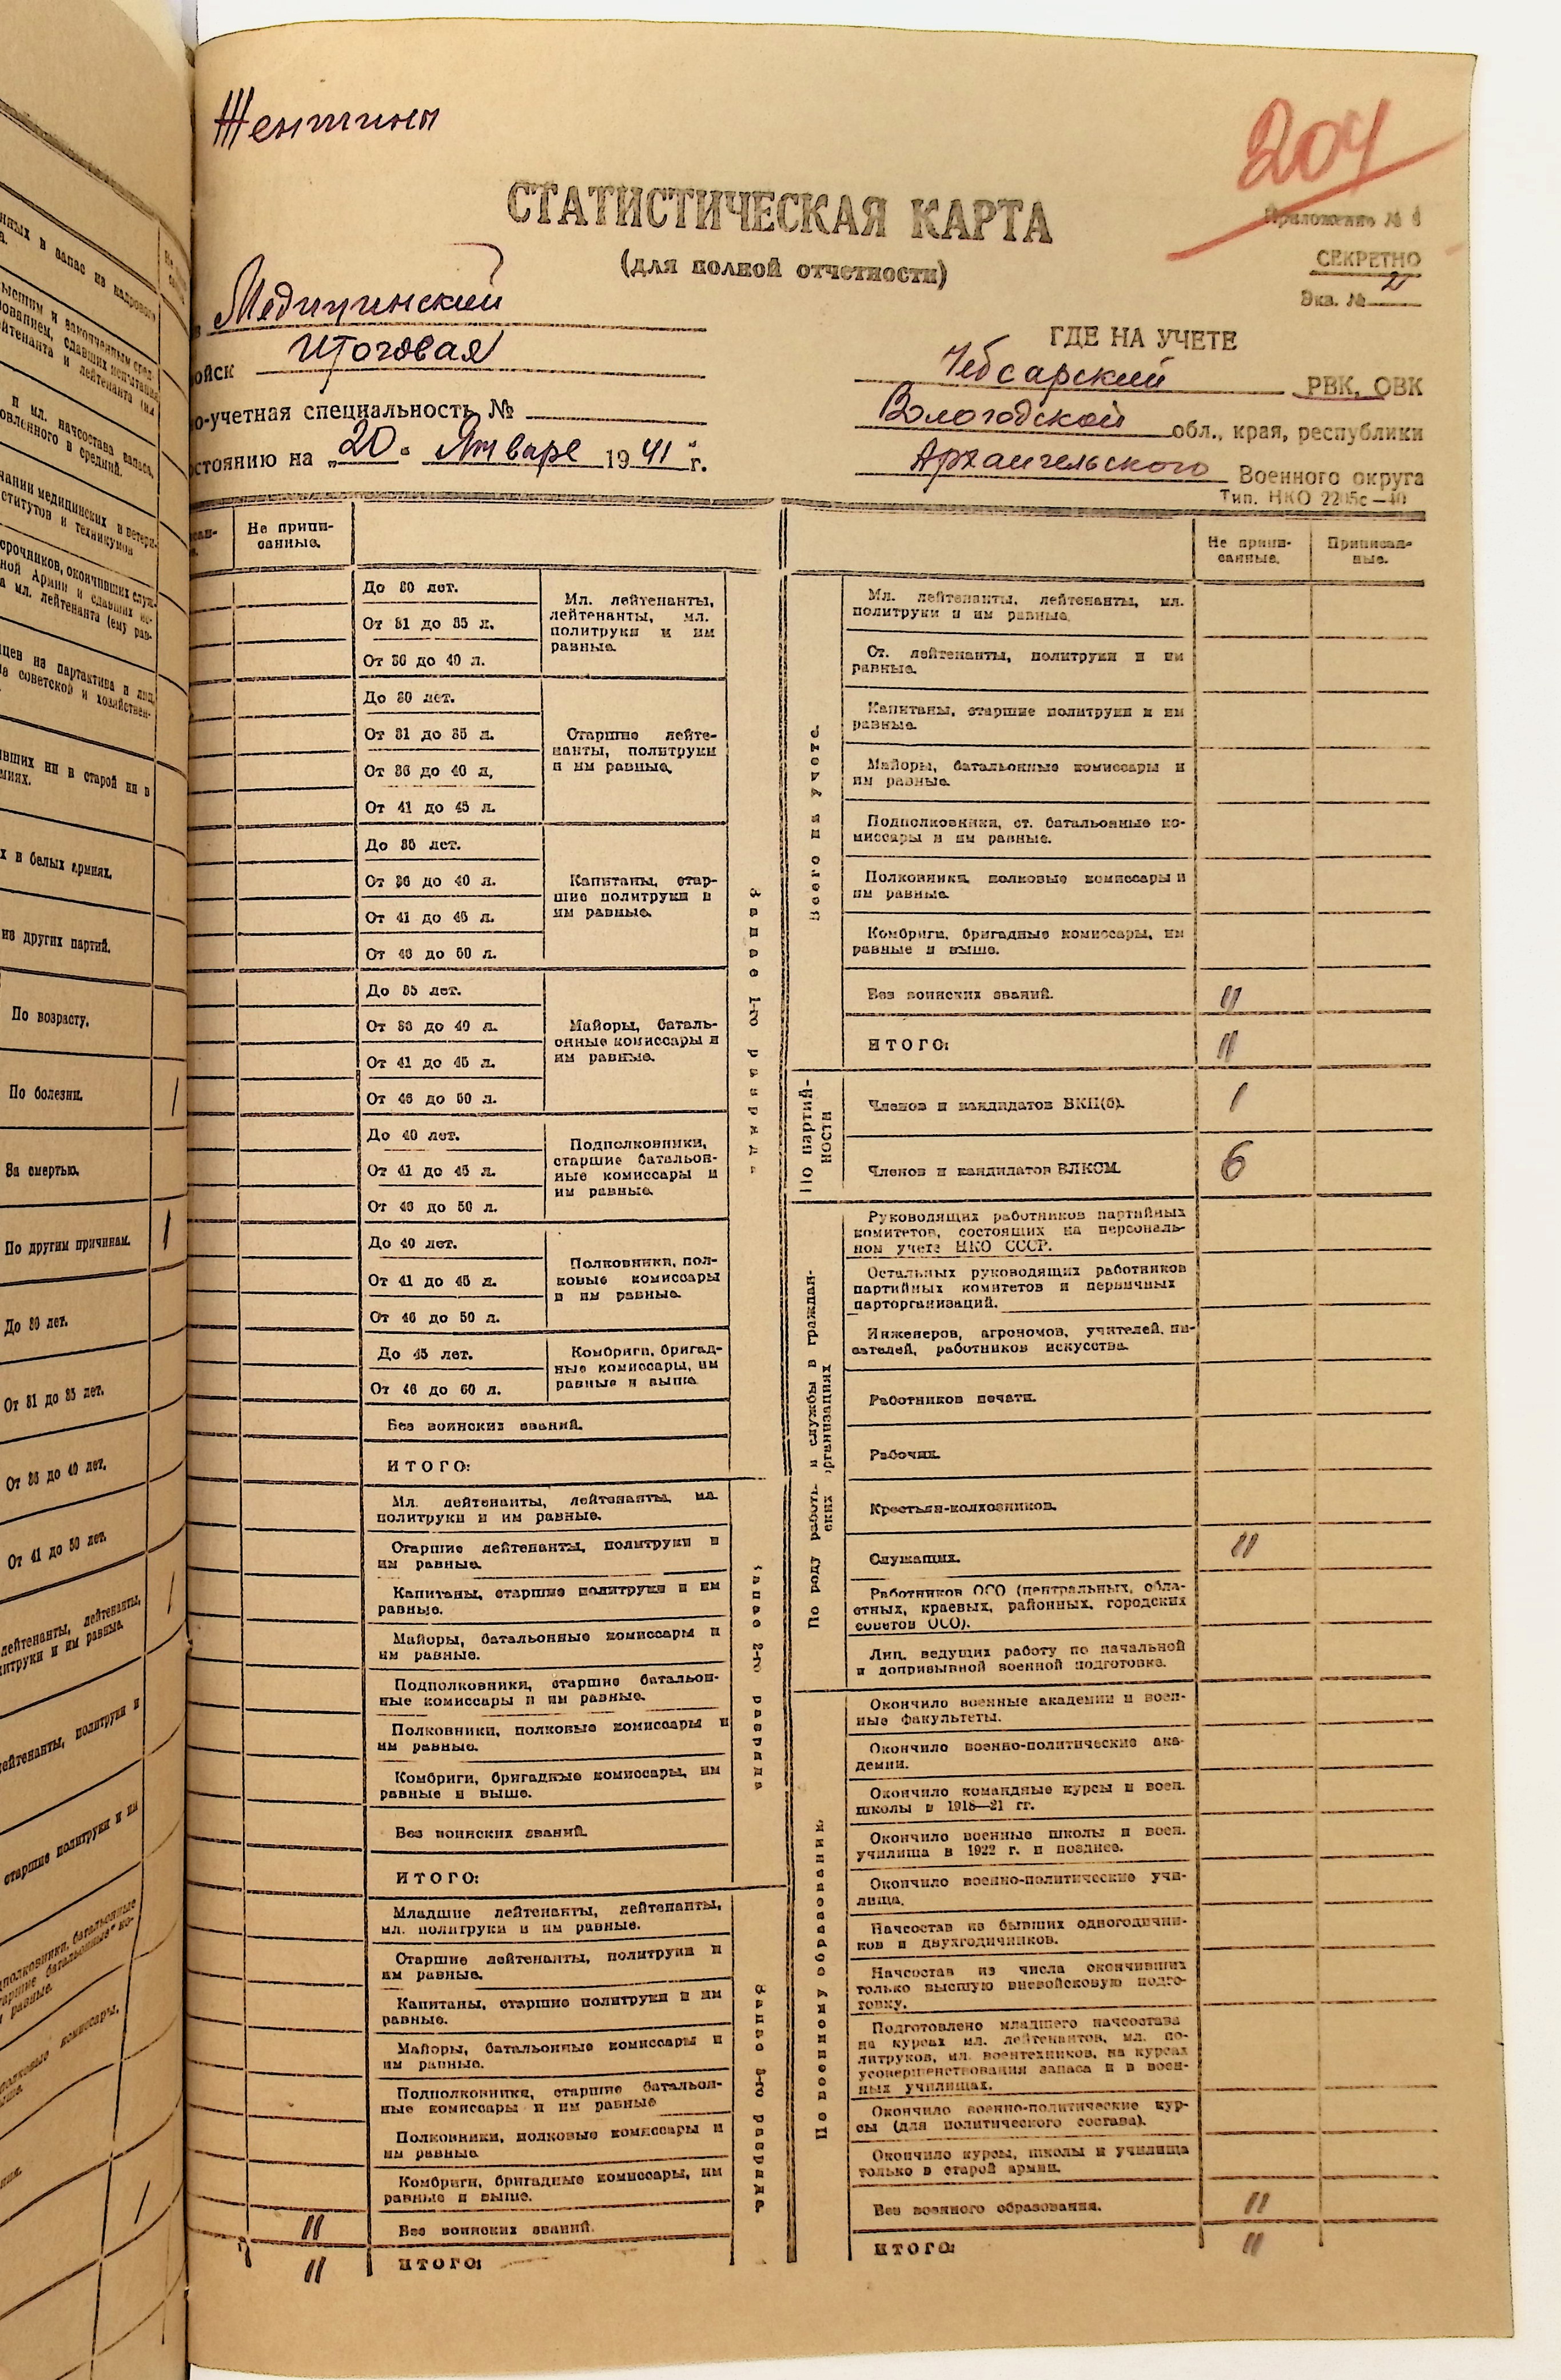 Женщины
204
СТАТИСТИЧЕСКАЯ КАРТА
(для полной отчетности)
Приложение № 6
СЕКРЕТНО
Экз. № 2
Медицинский
ойск Итоговая
о-учетная специальность №
стоянию на „20“ Январе 1941 г.
ГДЕ НА УЧЕТЕ
Чебсарский РВК, ОВК
Вологодской обл., края, республики
Архангельского Военного округа
Тип. НКО 2205с—40
Не припи-
санные.
До 30 лет.
От 31 до 35 л.
От 36 до 40 л.
Мл. лейтенанты,
лейтенанты, мл.
политруки и им
равные.
До 30 лет.
От 31 до 35 л.
От 36 до 40 л.
От 41 до 45 л.
Старшие лейте-
нанты, политруки
и им равные.
До 35 лет.
От 36 до 40 л.
От 41 до 45 л.
От 46 до 50 л.
Капитаны, стар-
шие политруки и
им равные.
До 35 лет.
От 36 до 40 л.
От 41 до 45 л.
От 46 до 50 л.
Майоры, баталь-
онные комиссары и
им равные.
До 40 лет.
От 41 до 45 л.
От 46 до 50 л.
Подполковники,
старшие батальон-
ные комиссары и
им равные.
До 40 лет.
От 41 до 45 л.
От 46 до 50 л.
Полковники, пол-
ковые комиссары
и им равные.
До 45 лет.
От 46 до 60 л.
Комбриги, бригад-
ные комиссары, им
равные и выше.
Без воинских званий.
ИТОГО:
Запас 1-го разряда
Мл. лейтенанты, лейтенанты, мл.
политруки и им равные.
Старшие лейтенанты, политруки и
им равные.
Капитаны, старшие политруки и им
равные.
Майоры, батальонные комиссары и
им равные.
Подполковники, старшие батальон-
ные комиссары и им равные.
Полковники, полковые комиссары и
им равные.
Комбриги, бригадные комиссары, им
равные и выше.
Без воинских званий.
ИТОГО:
Запас 2-го разряда
Младшие лейтенанты, лейтенанты,
мл. политруки и им равные.
Старшие лейтенанты, политруки и
им равные.
Капитаны, старшие политруки и им
равные.
Майоры, батальонные комиссары и
им равные.
Подполковники, старшие батальон-
ные комиссары и им равные
Полковники, полковые комиссары и
им равные.
Комбриги, бригадные комиссары, им
равные и выше.
11 Без воинских званий.
11 ИТОГО:
Запас 3-го разряда.
Не припи-
санные.
Приписан-
ные.
Всего на учете.
Мл. лейтенанты, лейтенанты, мл.
политруки и им равные.
Ст. лейтенанты, политруки и им
равные.
Капитаны, старшие политруки и им
равные.
Майоры, батальонные комиссары и
им равные.
Подполковники, ст. батальонные ко-
миссары и им равные.
Полковники, полковые комиссары и
им равные.
Комбриги, бригадные комиссары, им
равные и выше.
Без воинских званий. 11
ИТОГО: 11
По партий-
ности
Членов и кандидатов ВКП(б). 1
Членов и кандидатов ВЛКСМ. 6
По роду работы и службы в граждан-
ских организациях
Руководящих работников партийных
комитетов, состоящих на персональ-
ном учете НКО СССР.
Остальных руководящих работников
партийных комитетов и первичных
парторганизаций.
Инженеров, агрономов, учителей, пи-
сателей, работников искусства.
Работников печати.
Рабочих.
Крестьян-колхозников.
Служащих. 11
Работников ОСО (центральных, обла-
стных, краевых, районных, городских
советов ОСО).
Лиц, ведущих работу по начальной
и допризывной военной подготовке.
По военному образованию
Окончило военные академии и воен-
ные факультеты.
Окончило военно-политические ака-
демии.
Окончило командные курсы и воен.
школы в 1918—21 гг.
Окончило военные школы и воен.
училища в 1922 г. и позднее.
Окончило военно-политические учи-
лища.
Начсостав из бывших одногодични-
ков и двухгодичников.
Начсостав из числа окончивших
только высшую вневойсковую подго-
товку.
Подготовлено младшего начсостава
на курсах мл. лейтенантов, мл. по-
литруков, мл. воентехников, на курсах
усовершенствования запаса и в воен-
ных училищах.
Окончило военно-политические кур-
сы (для политического состава).
Окончило курсы, школы и училища
только в старой армии.
Без военного образования. 11
ИТОГО: 11
нных в запас из кадрового
п мл. начсостава запаса,
ститутов и техникумов
вших ни в старой ни в
миях.
х и белых армиях.
из других партий.
По возрасту.
По болезни. 1
За смертью.
По другим причинам. 1
До 30 лет.
От 31 до 35 лет.
От 36 до 40 лет.
От 41 до 50 лет.
лейтенанты, лейтенанты, 1
литруки и им равные.
лейтенанты, политруки и
старшие политруки и им
полковые комиссары,
1